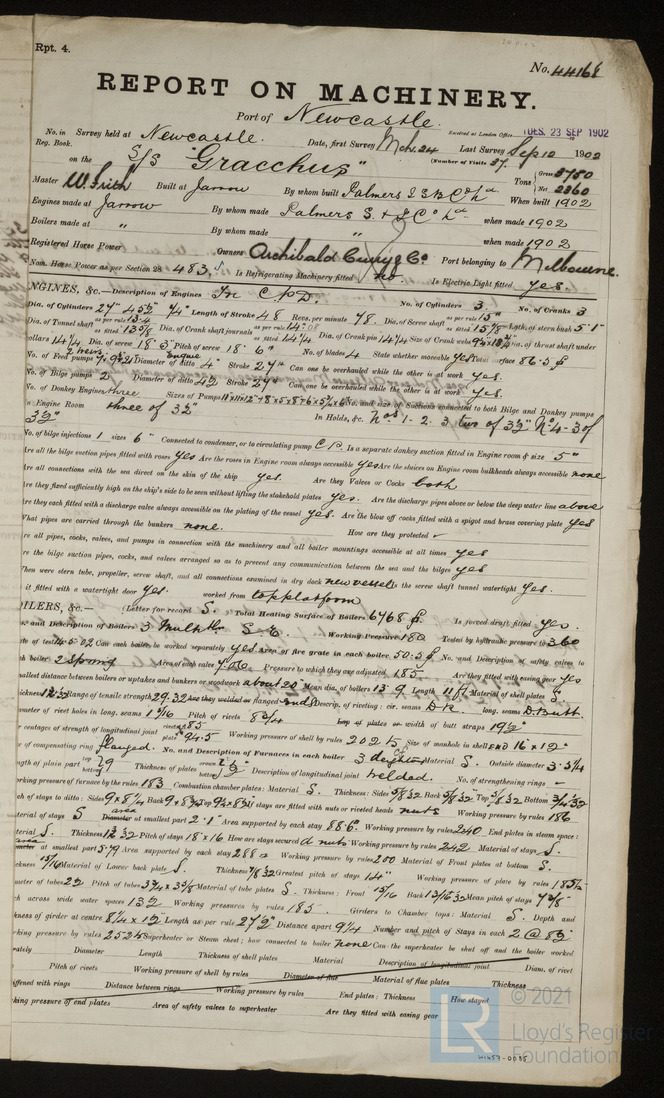 Rpt. 4.
No. 44168
REPORT ON MACHINERY.
Port of Newcastle.
Received at London Office TUES. 23 SEP 1902
No. in Survey held at Newcastle. Date, first Survey Mch. 24 Last Survey Sep 12 1902
Reg. Book.
(Number of Visits 37.
on the S/S "Gracchus"
Tons { Gross 3750
Net 2360
Master W. Frith Built at Jarrow By whom built Palmers S.B. Co Ld. When built 1902
Engines made at Jarrow By whom made Palmers S. & I. Co Ld. when made 1902
Boilers made at " By whom made " when made 1902
Registered Horse Power Owners Archibald Currie & Co. Port belonging to Melbourne.
Nom. Horse Power as per Section 28 483 Is Refrigerating Machinery fitted no. Is Electric Light fitted yes.
NGINES, &c.—Description of Engines No. of Cylinders 3. No. of Cranks 3
Dia. of Cylinders Length of Stroke 48 Revs. per minute 78. Dia. of Screw shaft as per rule 15" as fitted 15 7/8 Lgth. of stern bush 5'1"
Dia. of Tunnel shaft as per rule 13.4 as fitted 13 5/8 Dia. of Crank shaft journals as per rule 14.08 as fitted 14 1/4 Dia. of Crank pin 14 1/4 Size of Crank webs Dia. of thrust shaft under
collars 14 1/4 Dia. of screw 18' 3" Pitch of screw 18' 6" No. of blades 4 State whether moveable yes Total surface 86.5 ft
No. of Feed pumps Diameter of ditto 4" Stroke 27" Can one be overhauled while the other is at work yes.
No. of Bilge pumps 2. Diameter of ditto 4 1/2 Stroke 27" Can one be overhauled while the other is at work yes.
No. of Donkey Engines three Sizes of Pumps No. and size of Suctions connected to both Bilge and Donkey pumps
n Engine Room three of 3 1/2" In Holds, &c. Nos 1- 2. 3, two of 3 1/2" No 4 - 3 of
3 1/2"
No. of bilge injections 1 sizes 6" Connected to condenser, or to circulating pump C.P. Is a separate donkey suction fitted in Engine room & size 5"
re all the bilge suction pipes fitted with roses yes Are the roses in Engine room always accessible yes Are the sluices on Engine room bulkheads always accessible none
re all connections with the sea direct on the skin of the ship yes. Are they Valves or Cocks both
re they fixed sufficiently high on the ship's side to be seen without lifting the stokehold plates yes. Are the discharge pipes above or below the deep water line above
re they each fitted with a discharge valve always accessible on the plating of the vessel yes. Are the blow off cocks fitted with a spigot and brass covering plate yes
hat pipes are carried through the bunkers none. How are they protected –
re all pipes, cocks, valves, and pumps in connection with the machinery and all boiler mountings accessible at all times yes
re the bilge suction pipes, cocks, and valves arranged so as to prevent any communication between the sea and the bilges yes
hen were stern tube, propeller, screw shaft, and all connections examined in dry dock new vessel Is the screw shaft tunnel watertight yes.
it fitted with a watertight door yes. worked from top platform
OILERS, &c.— (Letter for record S. Total Heating Surface of Boilers 6468 ft. Is forced draft fitted yes.
and Description of Boilers 3 S.E. Working Pressure 180 Tested by hydraulic pressure to 360
te of test 14.5.02 Can each boiler be worked separately yes Area of fire grate in each boiler 50.5 ft No. and Description of safety valves to
ch boiler 2 Spring Area of each valve 7.06 Pressure to which they are adjusted 185 Are they fitted with easing gear yes
mallest distance between boilers or uptakes and bunkers or woodwork about 20" Mean dia. of boilers 13' 9" Length 11 ft Material of shell plates S.
ickness Range of tensile strength 29.32 Are they welded or flanged Descrip. of riveting: cir. seams D.R. long. seams D. Butt.
meter of rivet holes in long. seams 1 3/16 Pitch of rivets 8 3/4 Lap of plates or width of butt straps 19 1/2"
centages of strength of longitudinal joint rivets 85 plate 84.5 Working pressure of shell by rules 202 lb Size of manhole in shell END 16 x 12"
e of compensating ring flanged. No. and Description of Furnaces in each boiler 3 Deighton Material S. Outside diameter 3.3 3/4
ngth of plain part top bottom Thickness of plates crown bottom Description of longitudinal joint welded. No. of strengthening rings –
orking pressure of furnace by the rules 183 Combustion chamber plates: Material S. Thickness: Sides Back Top Bottom
ch of stays to ditto: Sides Back Top If stays are fitted with nuts or riveted heads nuts Working pressure by rules 186
aterial of stays S area Diameter at smallest part 2.1" Area supported by each stay 88.6. Working pressure by rules 240 End plates in steam space:
terial S. Thickness Pitch of stays 18 x 16 How are stays secured d nuts Working pressure by rules 242 Material of stays S.
area
ameter at smallest part 5.79 Area supported by each stay 288 Working pressure by rules 200 Material of Front plates at bottom S.
ickness 15/16 Material of Lower back plate S. Thickness Greatest pitch of stays 14" Working pressure of plate by rules 185 1/2
meter of tubes 2 1/2 Pitch of tubes Material of tube plates S. Thickness: Front 15/16 Back Mean pitch of stays 7 3/8"
ch across wide water spaces 13 1/2 Working pressures by rules 185. Girders to Chamber tops: Material S. Depth and
ckness of girder at centre Length as per rule 27 1/2" Distance apart 9 1/4 Number and pitch of Stays in each 2 @ 8 1/2"
rking pressure by rules Superheater or Steam chest; how connected to boiler none Can the superheater be shut off and the boiler worked
rately Diameter Length Thickness of shell plates Material Description of longitudinal joint Diam. of rivet
Pitch of rivets Working pressure of shell by rules Diameter of flue Material of flue plates Thickness
iffened with rings Distance between rings Working pressure by rules End plates: Thickness How stayed
king pressure of end plates Area of safety valves to superheater Are they fitted with easing gear
LR
© 2021
Lloyd's Register
Foundation
W1657-0085